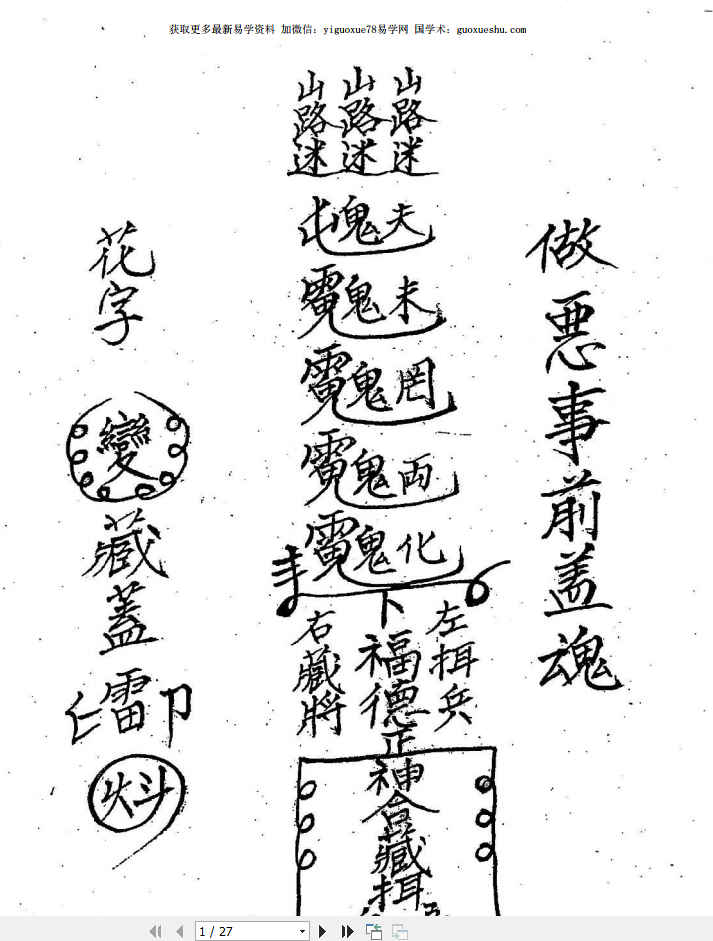 获取更多最新易学资料 加微信：yiguoxue78易学网 国学术：guoxueshu.com
做惡事前盖魂
山路迷
山路迷
山路迷
鬼夫
鬼未
鬼罔
鬼両
鬼化
左揖兵
福德正神
藏揖
右藏將
花字
變
藏蓋
雷
1 / 27